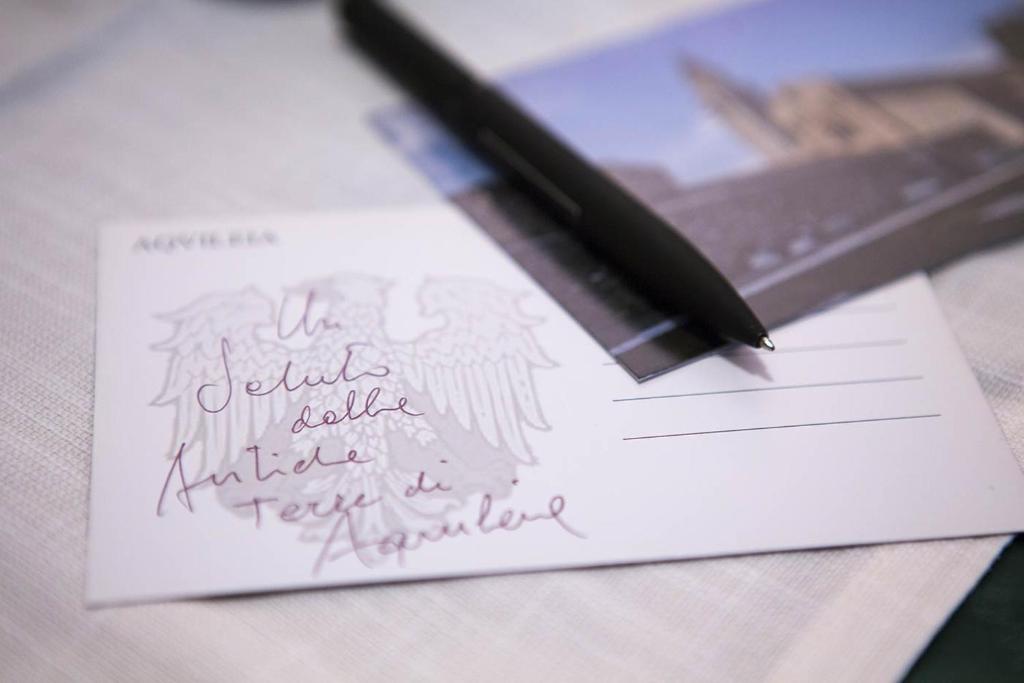 AQVILEIA
Un
Saluto
dalle
Antiche
terre di
Aquileia